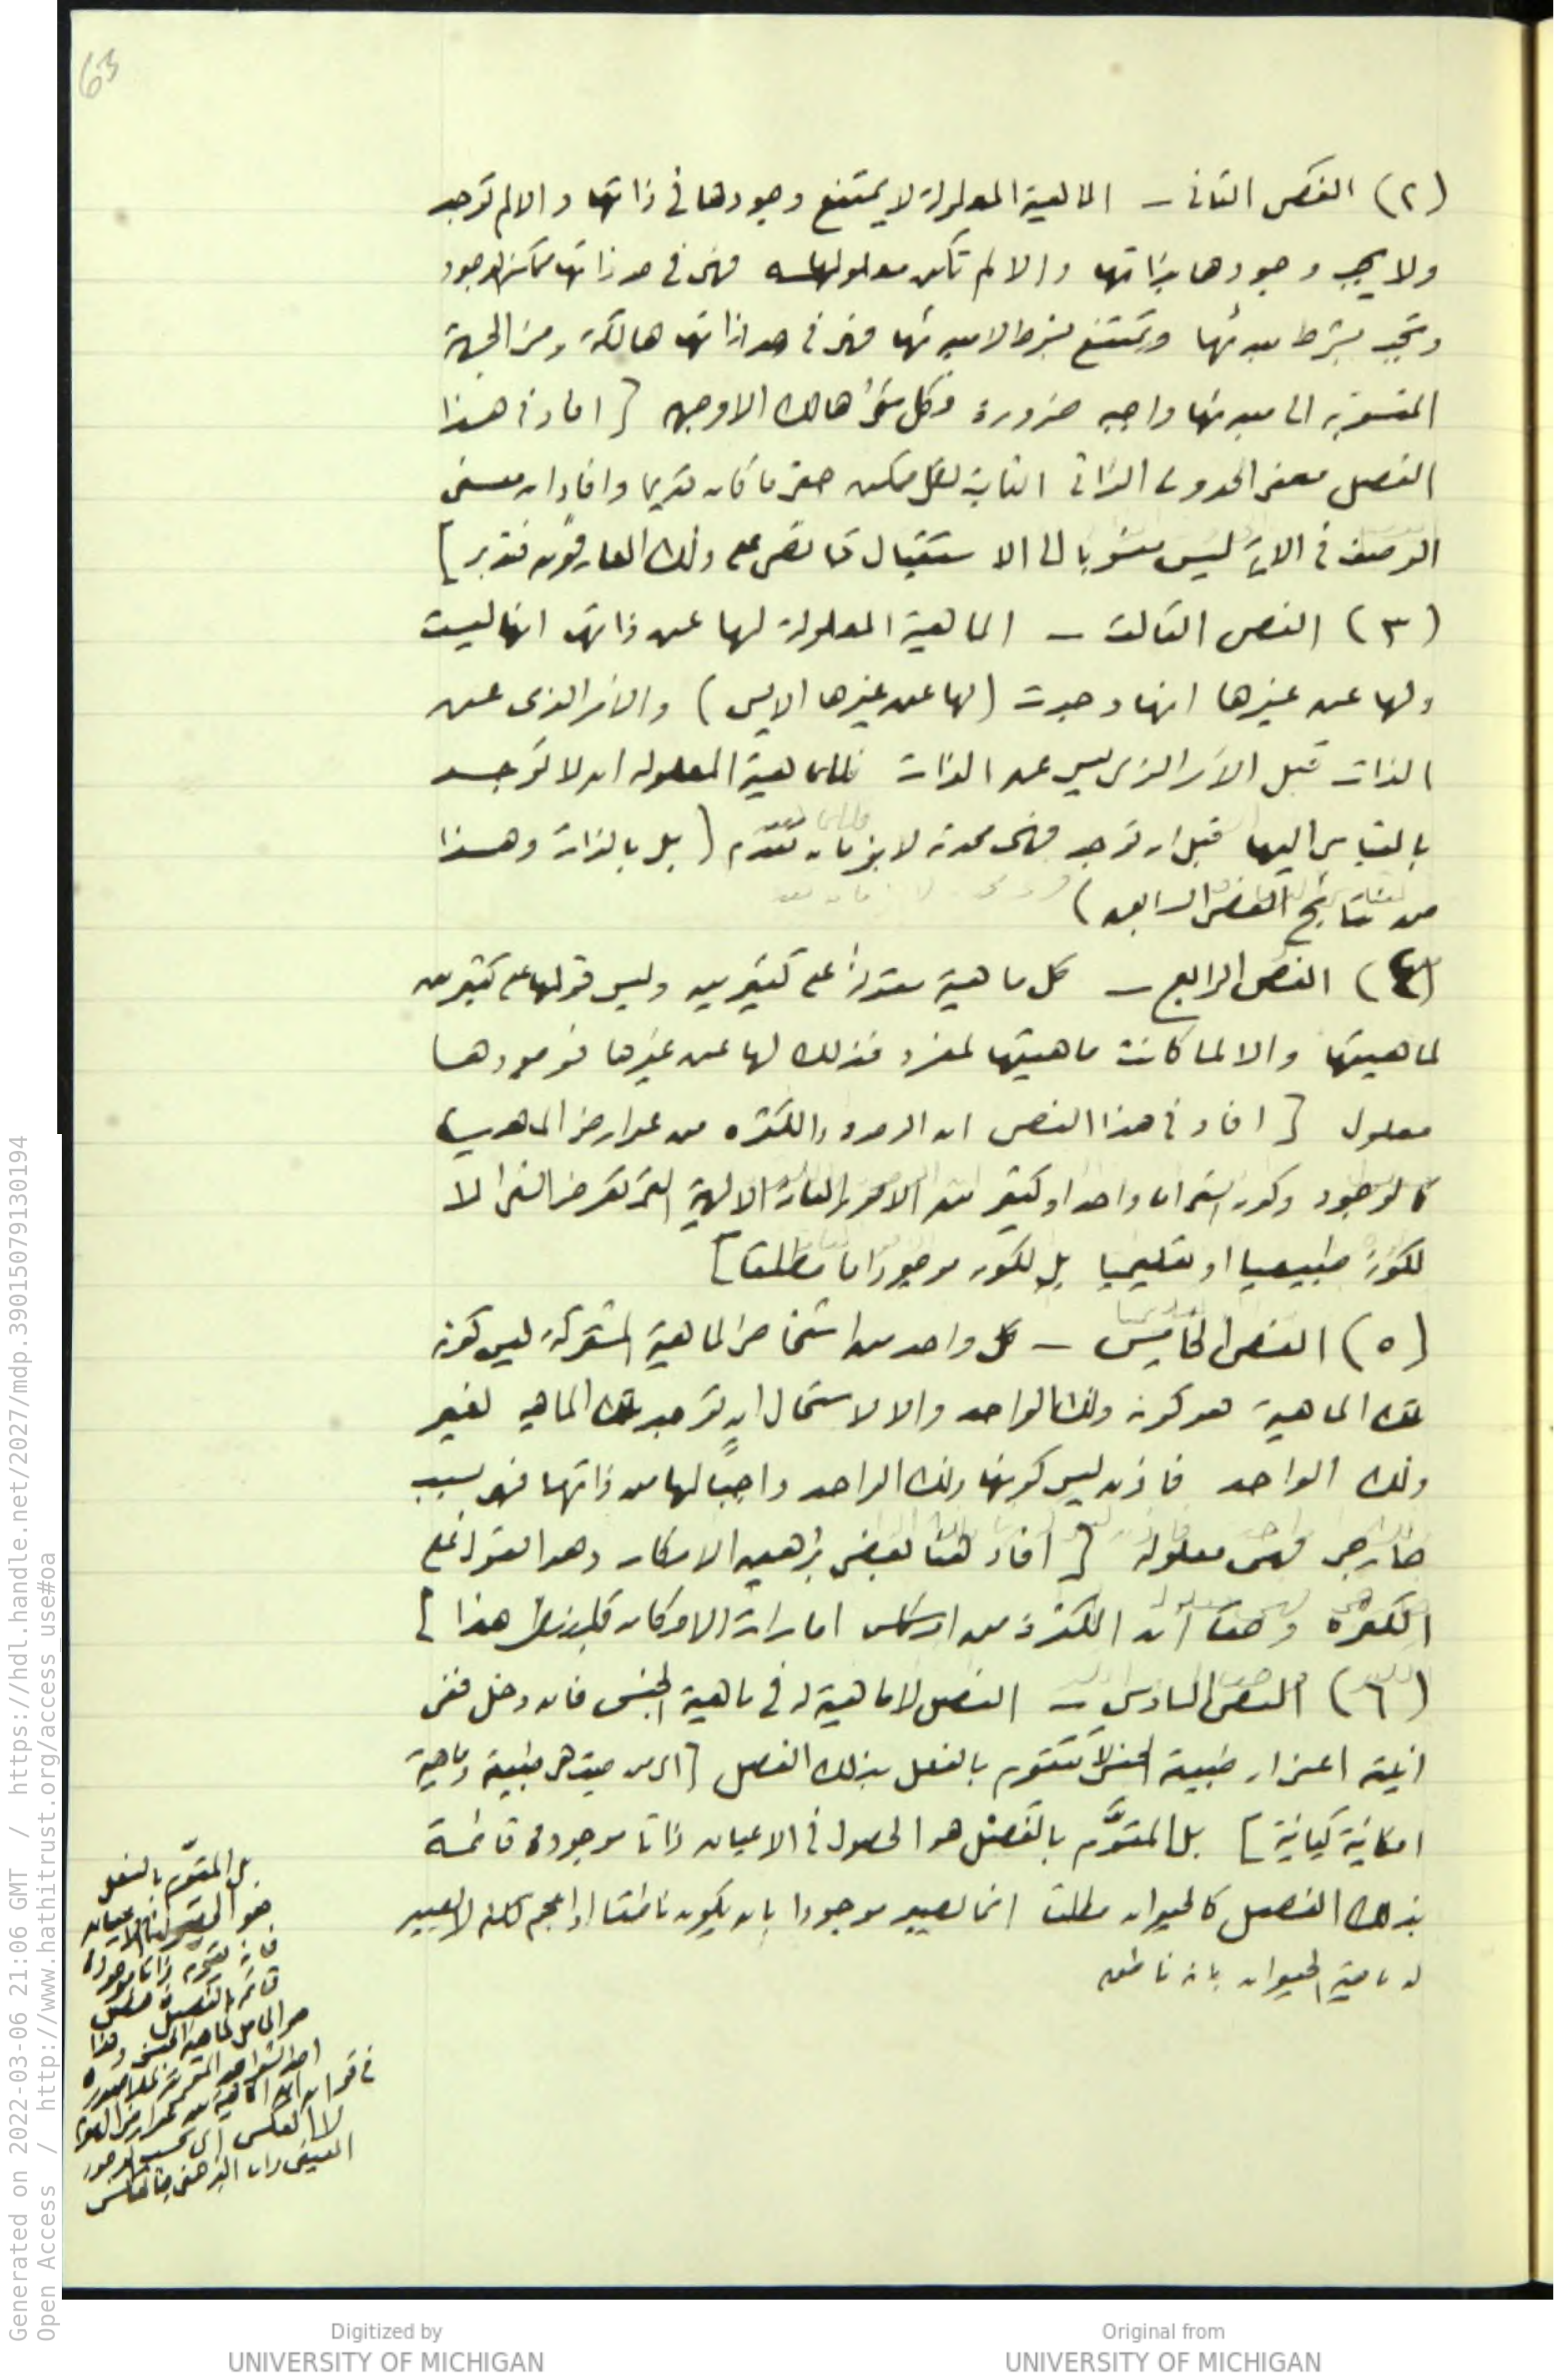 63
(٢) الفص الثانى – الماهية المعلولة لا يمتنع وجودها فى ذاتها والا لم توجد
ولا يجب وجودها بذاتها والا لم تكن معلولة فهى فى حد ذاتها ممكنة الوجود
وتجب بشرط مبدئها وتمتنع بشرط لا مبدئها فهى فى حد ذاتها هالكة ومن الجهة
المنسوبة الى مبدئها واجبه ضرورة وكل شئ هالك الا وجهه [ افاد فى هذا
الفصل معنى الحدوث الذاتى الثابة لكل ممكن حتى ما كان قديما وافاد ان معنى
الوصف فى الاية ليس منسوبا الى الاستقبال كما نص على ذلك العارفون فتدبر ]
(٣) الفص الثالث – الماهية المعلولة لها عن ذاتها انها ليست
ولها عن غيرها انها وجدت (لها عن غيرها الايس) والامر الذى عن
الذات قبل الامر الذى ليس عن الذات فللماهية المعلوله ان لا توجد
بالقياس اليها قبل ان توجد فهى محدثه لا بزمان تقدم ( بل بالذات وهذا
من نتائج الفص السابق )
(٤) الفص الرابع – كل ماهية مقولة على كثيرين وليس قولها على كثيرين
لماهيتها والا لما كانت ماهيتها لمفرد فذلك لها عن غيرها فوجودها
معلول [ افاد فى هذا الفص ان الوحدة والكثره من عوارض الماهيات
كالوجود وكون الشئ اما واحدا او كثيرا من الامور العامة الالهية التى تعرض الشئ لا
لكونه طبيعيا او تعليميا بل لكونه موجودا مطلقا ]
(٥) الفص الخامس – كل واحد من اشخاص الماهية المشتركة ليس كونه
تلك الماهية هو كونه ذلك الواحد والا لاستحال ان توجد تلك الماهيه لغير
ذلك الواحد فاذن ليس كونها ذلك الواحد واجباً لها من ذاتها فهو بسبب
خارجى فهى معلولة [ افاد هنا بعض براهين الامكان وهو القول على
الكثره وحقا ان الكثرة من امارات الامكان فلينظر هذا ]
(٦) الفص السادس – الفصل لا ماهية له فى ماهية الجنس فان دخل ففى
انيته اعنى ان طبيعة الجنس لا تتقوم بالفعل بذلك الفصل [ اى من حيث هى طبيعة وماهية
امكانية كيانية ] بل المتقوَّم بالفصل هو الحصول فى الاعيان ذاتا موجودة قائمة
بذلك الفصل كالحيوان مطلقا انما يصير موجودا بان يكون ناطقا او اعجم لكنه لا يصير
له ماهية الحيوان بانه ناطق
بل المتقوّم بالفعل
هو الحصول فى الاعيان
فانه تقوم ذاتا موجودة
قائمة بالفصل
لماهية الجنس وهذا
لا العكس اى بحسب الوجود
العينى واما الذهنى فبالعكس